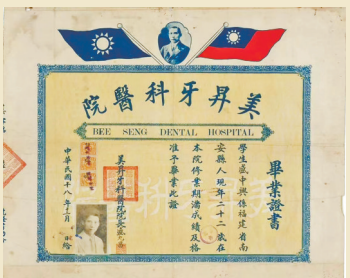 美昇牙科醫院
BEE SENG DENTAL HOSPITAL
畢業證書
學生盛中興係福建省南
安縣人現年二十二歲在
本院修業期滿成績及格
准予畢業此證
美昇牙科醫院院長
中華民國十八年十二月